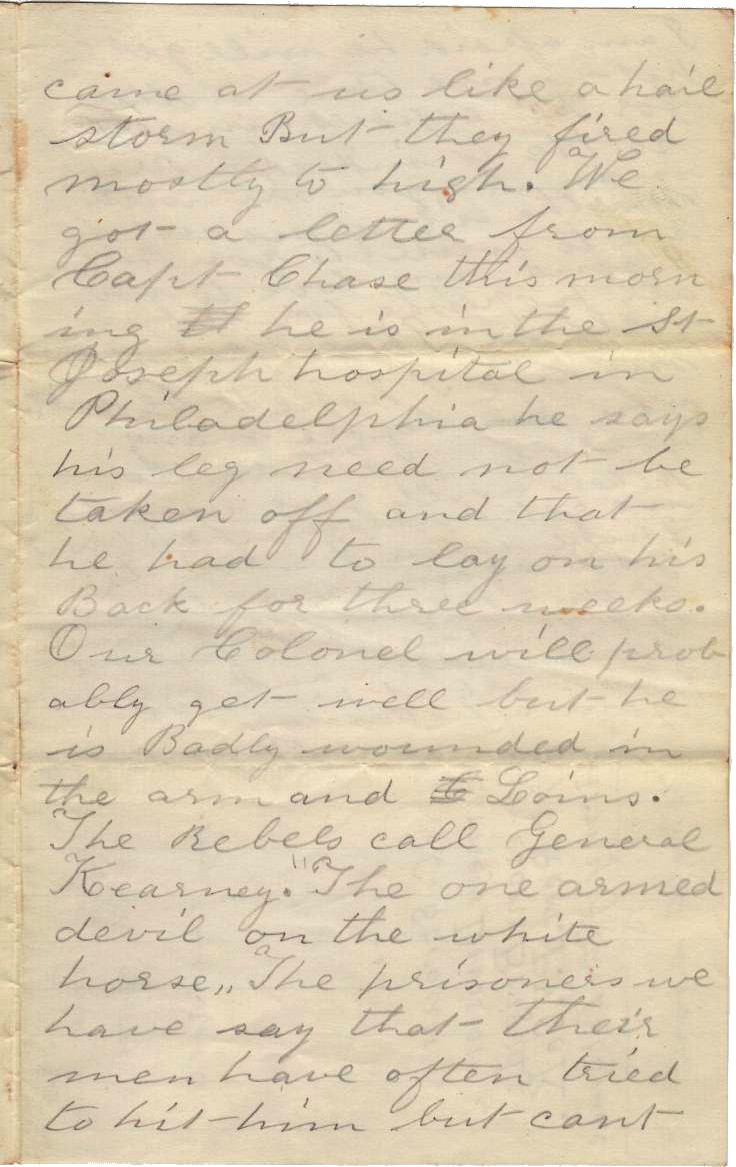 came at us like a hail
storm But they fired
mostly to high. We
got a letter from
Capt Chase this morn
ing he is in the St
Joseph hospital in
Philadelphia he says
his leg need not be
taken off and that
he had to lay on his
Back for three weeks.
Our Colonel will prob
ably get well but he
is Badly wounded in
the arm and Loins.
The Rebels call General
Kearney. "The one armed
devil on the white
horse„ The prisoners we
have say that their
men have often tried
to hit him but cant